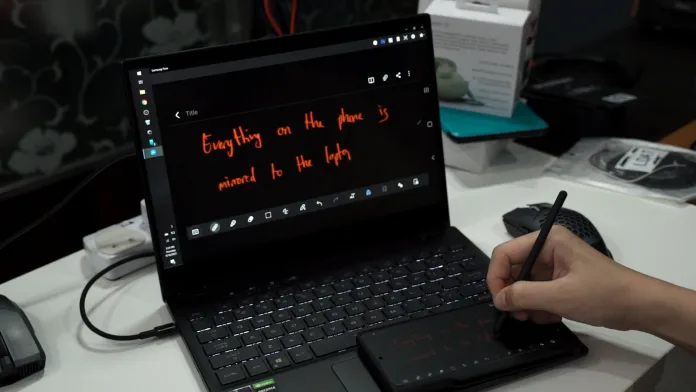 Samsung Flow
Title
Everything on the phone is
mirrored to the laptop